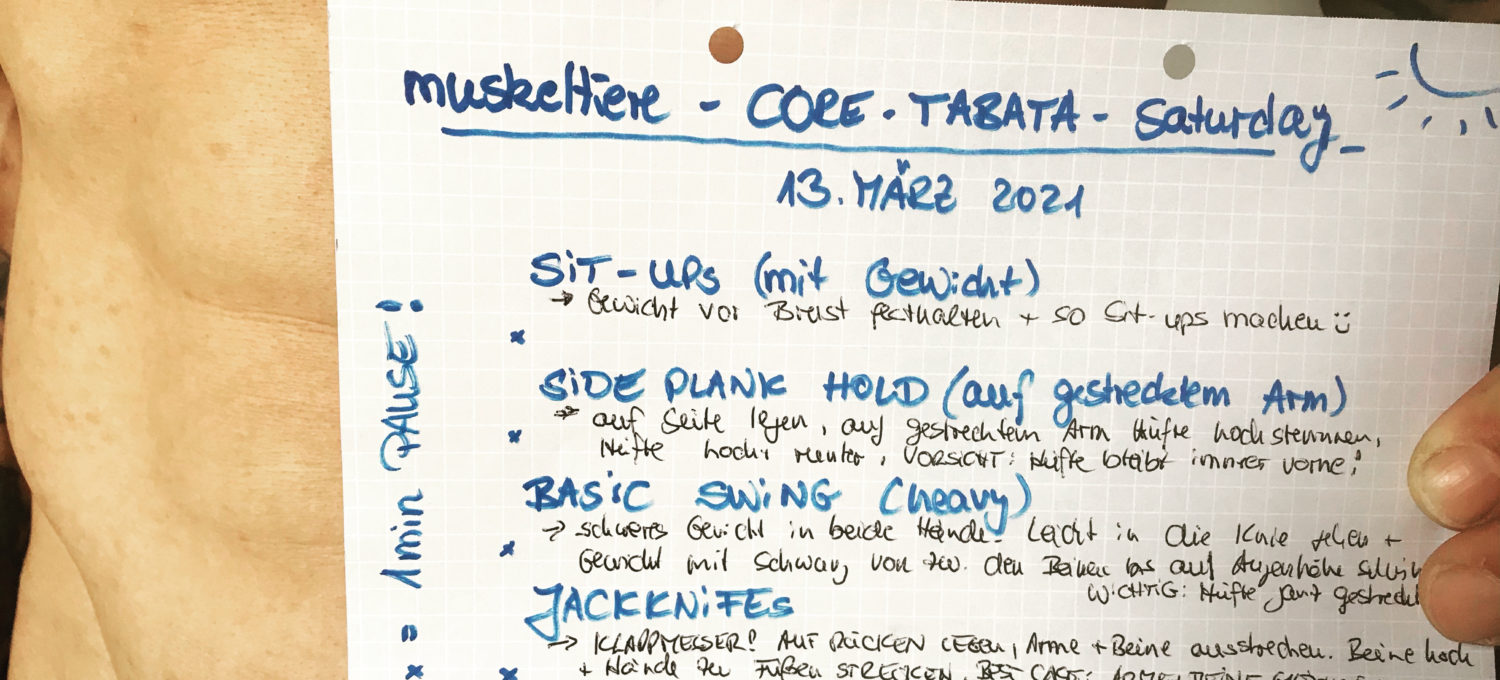 muskeltiere - CORE - TABATA - Saturday -
13. MÄRZ 2021
SiT-UPs (mit Gewicht)
→ Gewicht vor Brust festhalten + so Sit-ups machen ü
x
SiDE PLANK HOLD (auf gestrecktem Arm)
→ auf Seite legen, auf gestrecktem Arm Hüfte hochstemmen,
x Hüfte hoch + runter, VORSICHT: Hüfte bleibt immer vorne!
BASiC SWiNG (heavy)
→ schweres Gewicht in beide Hände. Leicht in die Knie gehen +
x Gewicht mit Schwung von zw. den Beinen bis auf Augenhöhe
WiCHTiG: Hüfte ganz
JACKKNiFEs
→ KLAPPMESSER! AUF RÜCKEN LEGEN, Arme + Beine ausstrecken. Beine hoch
x + Hände zu Füßen STRECKEN. BEST CASE:
x = 1 min PAUSE!